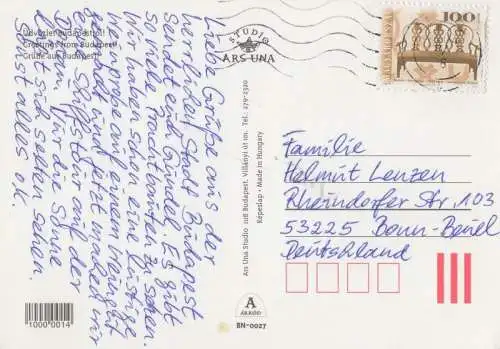 Üdvözlet Budapestről!
Greetings from Budapest!
Grüße aus Budapest!
Liebe Grüße aus der
herrlichen Stadt Budapest
sendet euch Gundel. Es gibt
so viele Prachtbauten zu sehen.
Wir haben schon eine lustige
Weinprobe auf einem Weingut
und jetzt machen wir
eine Schiffstour auf der
Donau, für die Sonne
läßt sich selten sehen.
Sonst alles o.k.
STUDIO
ARS UNA
Ars Una Studio 1118 Budapest, Villányi út 101. Tel.: 279-1320
Képeslap • Made in Hungary
A
ÁRKÁD
BN-0027
1000 0014
100 Ft
Familie
Helmut Lenzen
Rheindorfer Str. 103
53225 Bonn-Beuel
Deutschland